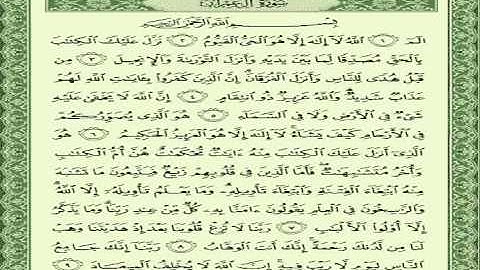 سورة آل عمران
بسم الله الرحمن الرحيم
الٓمٓ ١ ٱللَّهُ لَآ إِلَٰهَ إِلَّا هُوَ ٱلْحَىُّ ٱلْقَيُّومُ ٢ نَزَّلَ عَلَيْكَ ٱلْكِتَٰبَ
بِٱلْحَقِّ مُصَدِّقًا لِّمَا بَيْنَ يَدَيْهِ وَأَنزَلَ ٱلتَّوْرَىٰةَ وَٱلْإِنجِيلَ ٣ مِن
قَبْلُ هُدًى لِّلنَّاسِ وَأَنزَلَ ٱلْفُرْقَانَ إِنَّ ٱلَّذِينَ كَفَرُوا۟ بِـَٔايَٰتِ ٱللَّهِ لَهُمْ
عَذَابٌ شَدِيدٌ وَٱللَّهُ عَزِيزٌ ذُو ٱنتِقَامٍ ٤ إِنَّ ٱللَّهَ لَا يَخْفَىٰ عَلَيْهِ
شَىْءٌ فِى ٱلْأَرْضِ وَلَا فِى ٱلسَّمَآءِ ٥ هُوَ ٱلَّذِى يُصَوِّرُكُمْ
فِى ٱلْأَرْحَامِ كَيْفَ يَشَآءُ لَآ إِلَٰهَ إِلَّا هُوَ ٱلْعَزِيزُ ٱلْحَكِيمُ ٦ هُوَ
ٱلَّذِىٓ أَنزَلَ عَلَيْكَ ٱلْكِتَٰبَ مِنْهُ ءَايَٰتٌ مُّحْكَمَٰتٌ هُنَّ أُمُّ ٱلْكِتَٰبِ
وَأُخَرُ مُتَشَٰبِهَٰتٌ فَأَمَّا ٱلَّذِينَ فِى قُلُوبِهِمْ زَيْغٌ فَيَتَّبِعُونَ مَا تَشَٰبَهَ
مِنْهُ ٱبْتِغَآءَ ٱلْفِتْنَةِ وَٱبْتِغَآءَ تَأْوِيلِهِۦ وَمَا يَعْلَمُ تَأْوِيلَهُۥٓ إِلَّا ٱللَّهُ
وَٱلرَّٰسِخُونَ فِى ٱلْعِلْمِ يَقُولُونَ ءَامَنَّا بِهِۦ كُلٌّ مِّنْ عِندِ رَبِّنَا وَمَا يَذَّكَّرُ
إِلَّآ أُو۟لُوا۟ ٱلْأَلْبَٰبِ ٧ رَبَّنَا لَا تُزِغْ قُلُوبَنَا بَعْدَ إِذْ هَدَيْتَنَا وَهَبْ
لَنَا مِن لَّدُنكَ رَحْمَةً إِنَّكَ أَنتَ ٱلْوَهَّابُ ٨ رَبَّنَآ إِنَّكَ جَامِعُ
ٱلنَّاسِ لِيَوْمٍ لَّا رَيْبَ فِيهِ إِنَّ ٱللَّهَ لَا يُخْلِفُ ٱلْمِيعَادَ ٩